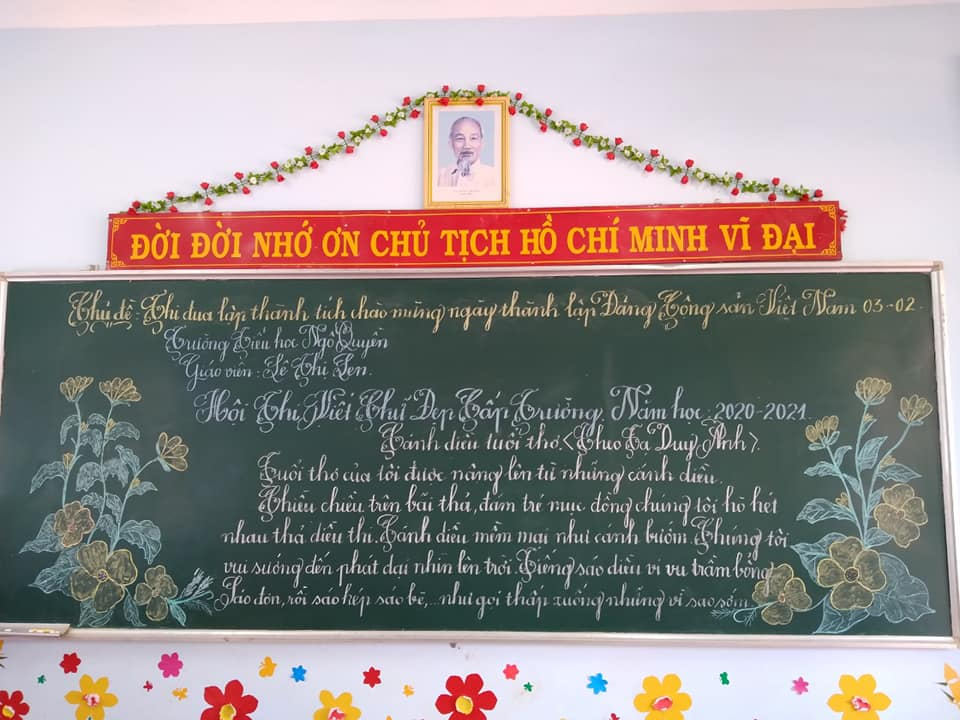 ĐỜI ĐỜI NHỚ ƠN CHỦ TỊCH HỒ CHÍ MINH VĨ ĐẠI
Chủ đề: Thi đua lập thành tích chào mừng ngày thành lập Đảng Cộng sản Việt Nam 03-02.
Trường Tiểu học Ngô Quyền
Giáo viên: Lê Thị Sen.
Hội Thi Viết Chữ Đẹp Cấp Trường Năm học: 2020-2021
Cánh diều tuổi thơ. (Theo Tạ Duy Anh).
Tuổi thơ của tôi được nâng lên từ những cánh diều.
Chiều chiều trên bãi thả, đám trẻ mục đồng chúng tôi hò hét
nhau thả diều thi. Cánh diều mềm mại như cánh bướm. Chúng tôi
vui sướng đến phát dại nhìn lên trời. Tiếng sáo diều vi vu trầm bổng
Sáo đơn, rồi sáo kép, sáo bè,... như gọi thấp xuống những vì sao sớm.